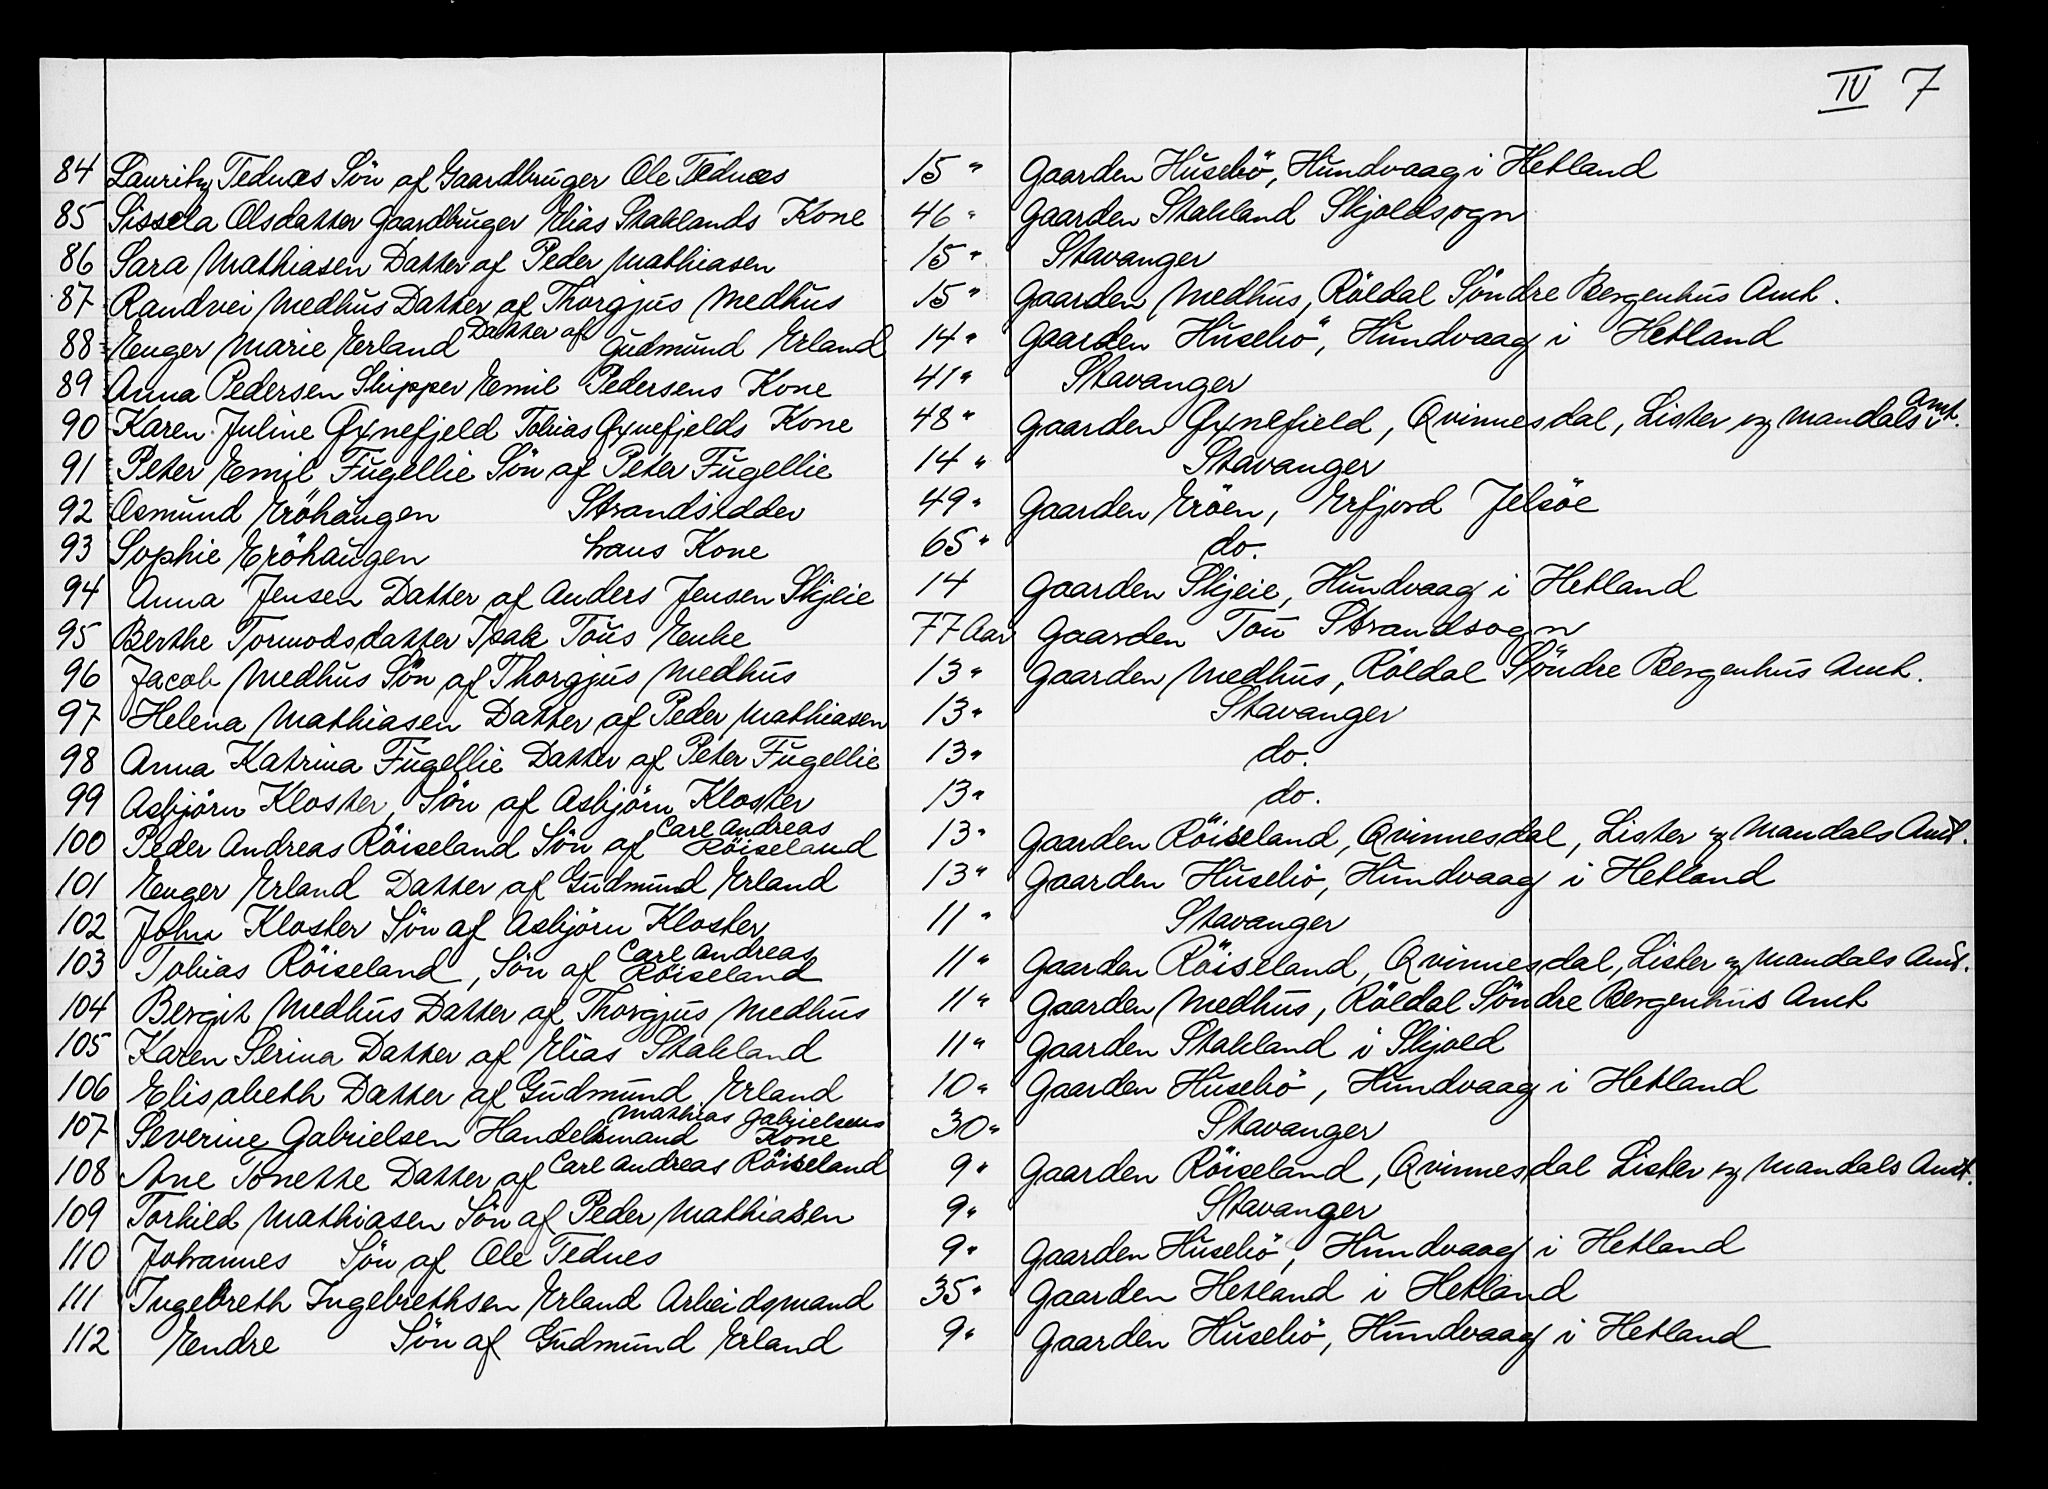 IV 7
84 Lauritz Tednæs Sön af Gaardbruger Ole Tednæs 15 " Gaarden Husebö, Hundvaag i Hetland
85 Sissela Olsdatter Gaardbruger Elias Staklands Kone 46 " Gaarden Stakland Skjoldsogn
86 Sara Mathiasen Datter af Peder Mathiasen 15 " Stavanger
87 Randvei Medhus Datter af Thorgjus Medhus 15 " Gaarden Medhus, Röldal Söndre Bergenhus Amt.
88 Enger Marie Erland Datter af Gudmund Erland 14 " Gaarden Husebö, Hundvaag i Hetland
89 Anna Pedersen Skipper Emil Pedersens Kone 41 " Stavanger
90 Karen Juline Øxnefjeld Tobias Øxnefjelds Kone 48 " Gaarden Øxnefield, Qvinnesdal, Lister og Mandals Amt.
91 Peter Emil Fugellie Sön af Peter Fugellie 14 " Stavanger
92 Osmund Eröhaugen Strandsidder 49 " Gaarden Eröen, Erfjord Jelsöe
93 Sophie Eröhaugen hans Kone 65 " do.
94 Anna Jensen Datter af Anders Jensen Skjeie 14 Gaarden Skjeie, Hundvaag i Hetland
95 Berthe Tormodsdatter Isak Tous Enke 77 Aar Gaarden Tou Strandsogn
96 Jacob Medhus Sön af Thorgjus Medhus 13 " Gaarden Medhus, Röldal Söndre Bergenhus Amt.
97 Helena Mathiasen Datter af Peder Mathiasen 13 " Stavanger
98 Anna Katrina Fugellie Datter af Peter Fugellie 13 " do.
99 Asbjörn Kloster, Sön af Asbjörn Kloster 13 " do.
100 Peder Andreas Röiseland Sön af Carl Andreas Röiseland 13 " Gaarden Röiseland, Qvinnesdal, Lister og Mandals Amt.
101 Enger Erland Datter af Gudmund Erland 13 " Gaarden Husebö, Hundvaag i Hetland
102 John Kloster Sön af Asbjörn Kloster 11 " Stavanger
103 Tobias Röiseland, Sön af Carl Andreas Röiseland 11 " Gaarden Röiseland, Qvinnesdal, Lister og Mandals Amt.
104 Bergit Medhus Datter af Thorgjus Medhus 11 " Gaarden Medhus, Röldal Söndre Bergenhus Amt
105 Karen Serina Datter af Elias Stakland 11 " Gaarden Stakland i Skjold
106 Elisabeth Datter af Gudmund Erland 10 " Gaarden Husebö, Hundvaag i Hetland
107 Severine Gabrielsen Handelsmand Mathias Gabrielsens Kone 30 " Stavanger
108 Ane Tonette Datter af Carl Andreas Röiseland 9 " Gaarden Röiseland, Qvinnesdal Lister og Mandals Amt.
109 Torkild Mathiasen Sön af Peder Mathiasen 9 " Stavanger
110 Johannes Sön af Ole Tednes 9 " Gaarden Husebö, Hundvaag i Hetland
111 Ingebreth Ingebrethsen Erland Arbeidsmand 35 " Gaarden Hetland i Hetland
112 Endre Sön af Gudmund Erland 9 " Gaarden Husebö, Hundvaag i Hetland